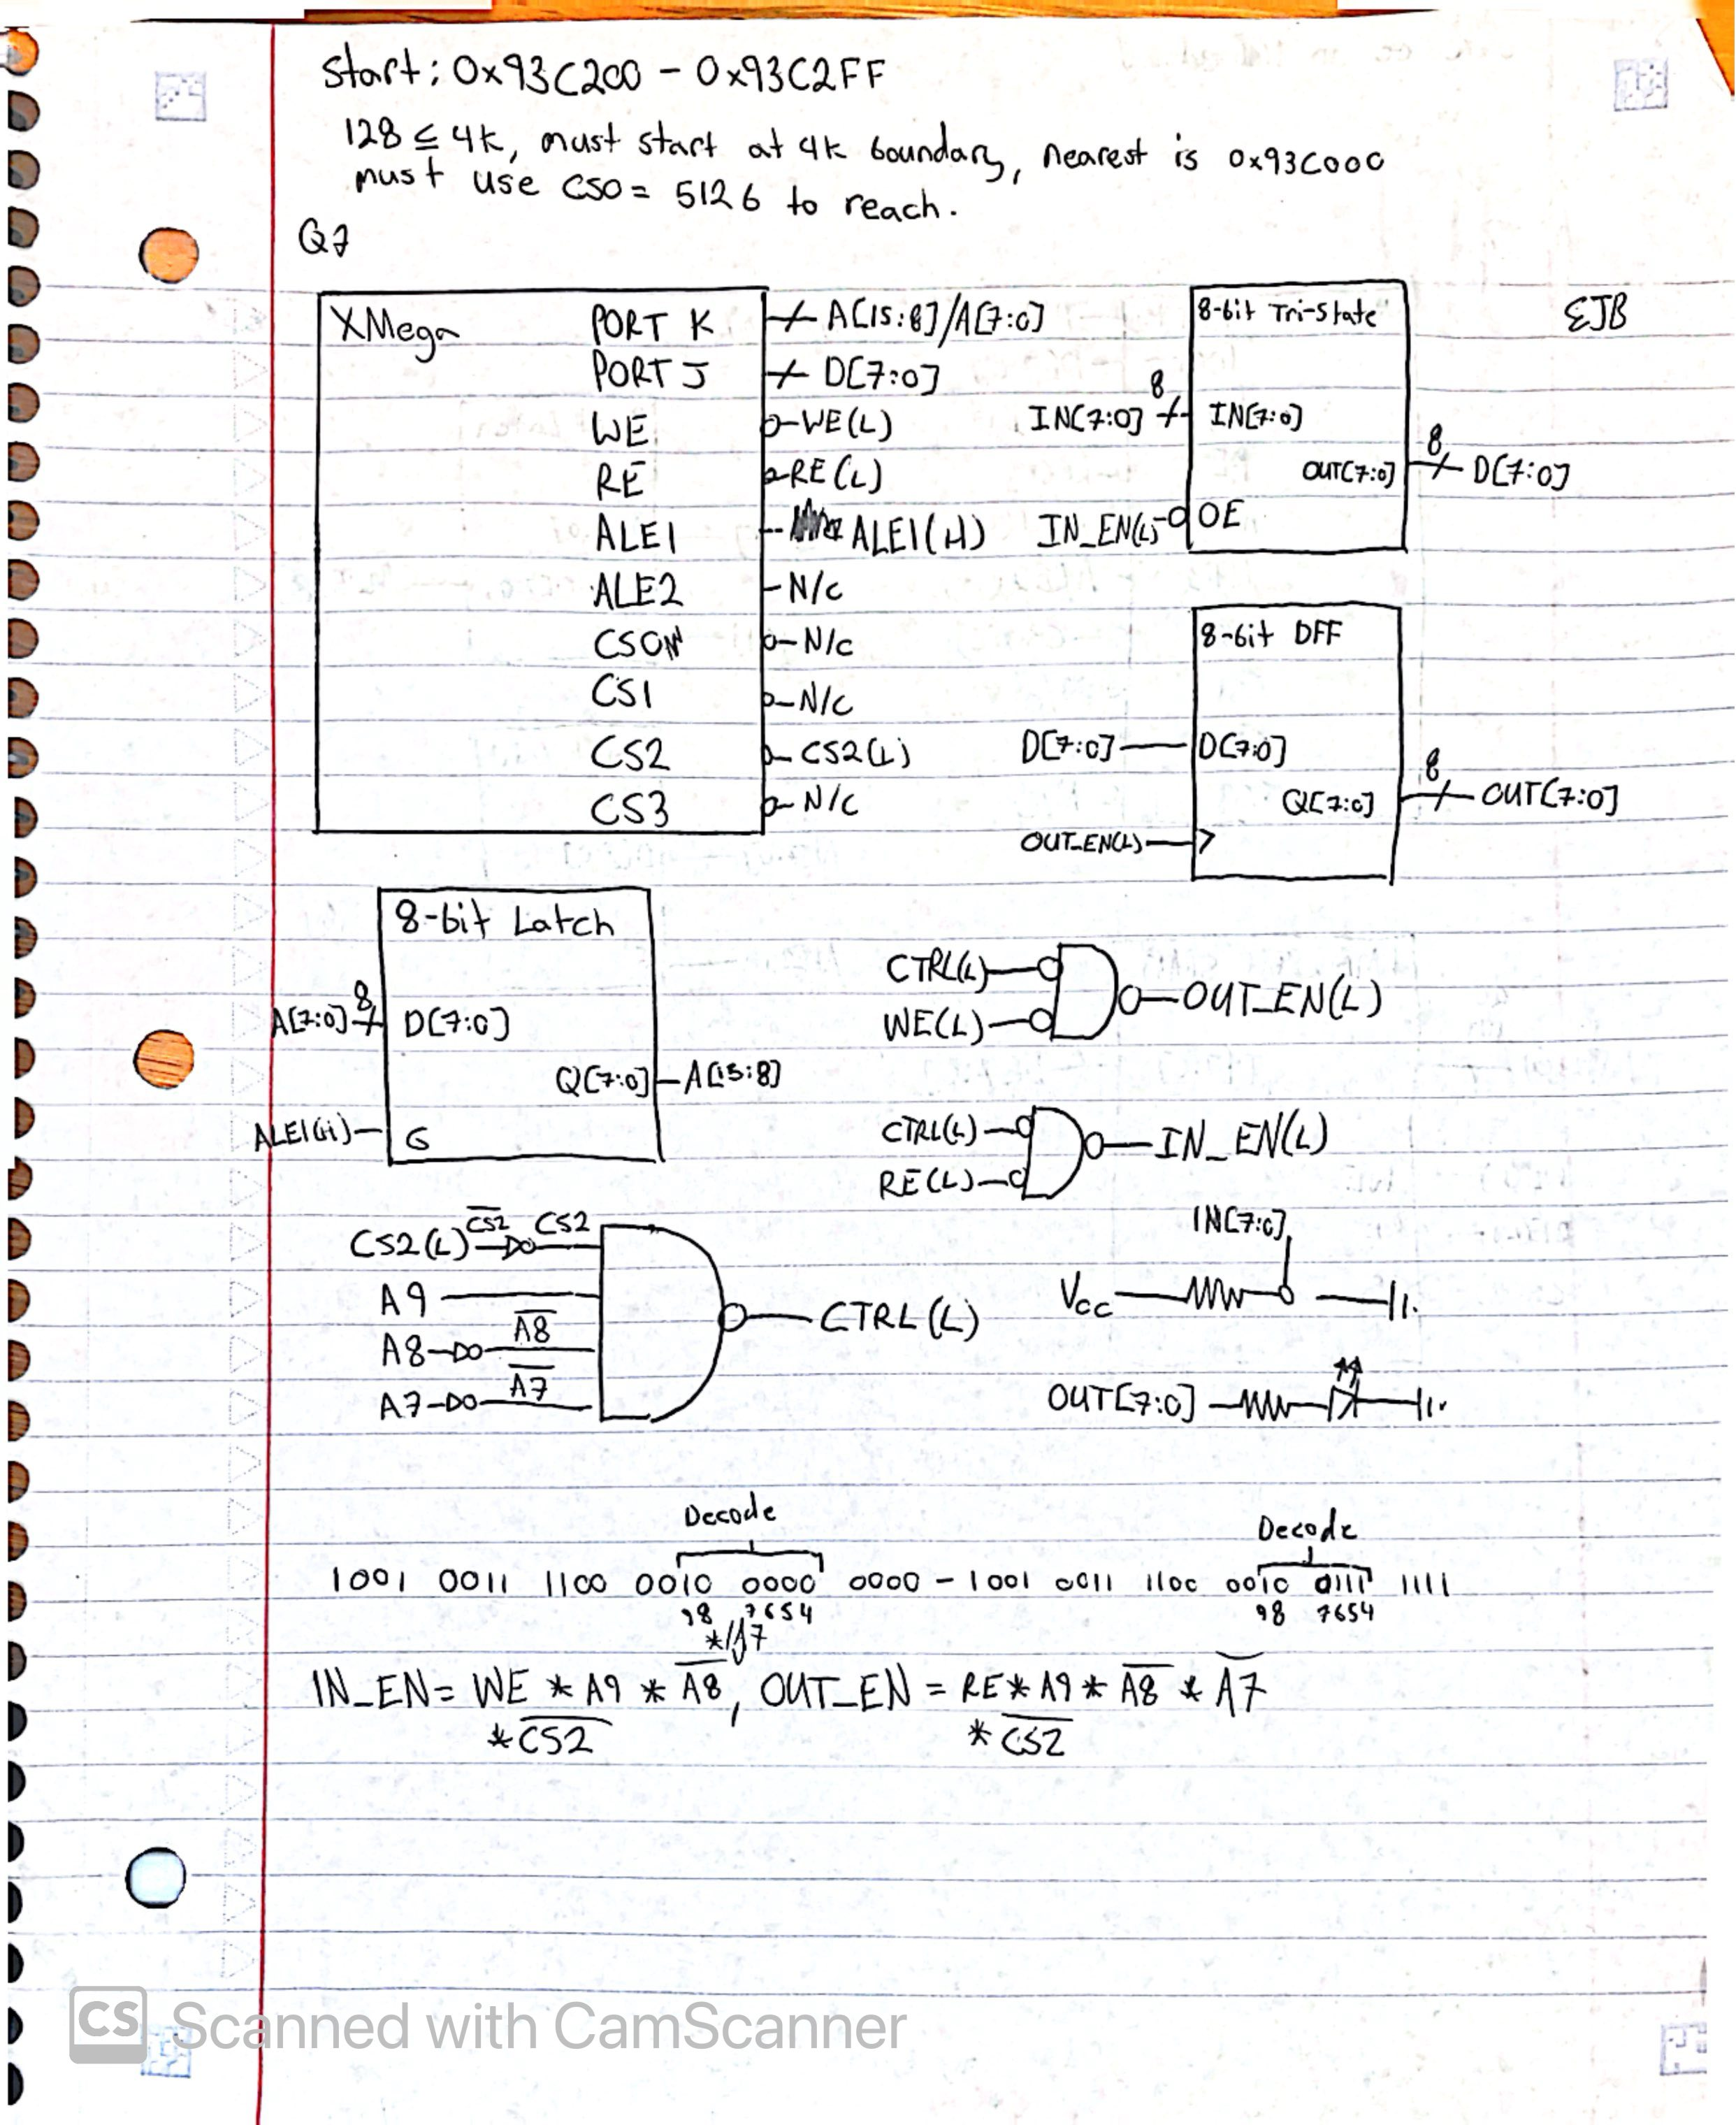 Start: 0x93C200 - 0x93C2FF
128 ≤ 4k, must start at 4k boundary, nearest is 0x93C000
must use CS0 = 512B to reach.
Q7
XMega
PORT K A[15:8]/A[7:0]
PORT J D[7:0]
WE WE(L)
RE RE(L)
ALE1 ALE1(H)
ALE2 N/C
CS0 N/C
CS1 N/C
CS2 CS2(L)
CS3 N/C
EJB
8-bit Tri-State
8
IN[7:0] IN[7:0]
8
OUT[7:0] D[7:0]
IN_EN(L) OE
8-bit DFF
D[7:0] D[7:0]
8
Q[7:0] OUT[7:0]
OUT_EN(L)
8-bit Latch
8
A[7:0] D[7:0]
Q[7:0] A[15:8]
ALE1(H) G
CTRL(L)
WE(L) OUT_EN(L)
CTRL(L)
RE(L) IN_EN(L)
CS2(L) C̅S̅2̅ CS2
A9
A8 A̅8̅
A7 A̅7̅
CTRL(L)
IN[7:0]
Vcc
OUT[7:0]
Decode Decode
1001 0011 1100 0010 0000 0000 - 1001 0011 1100 0010 0111 1111
98 7654 98 7654
*A̅7̅
IN_EN = WE * A9 * A̅8̅, OUT_EN = RE * A9 * A̅8̅ * A̅7̅
* C̅S̅2̅ * C̅S̅2̅
CS Scanned with CamScanner